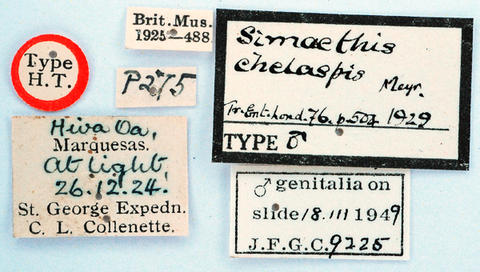 Brit. Mus.
1925—488.
Type
H.T.
P275
Simaethis
chelaspis
Meyr.
Tr. Ent. Lond. 76. p. 502 1929
TYPE ♂
Hiva Oa,
Marquesas.
At light
26.12.24.
St. George Expedn.
C. L. Collenette.
♂ genitalia on
slide 18.III 1949
J.F.G.C. 9225